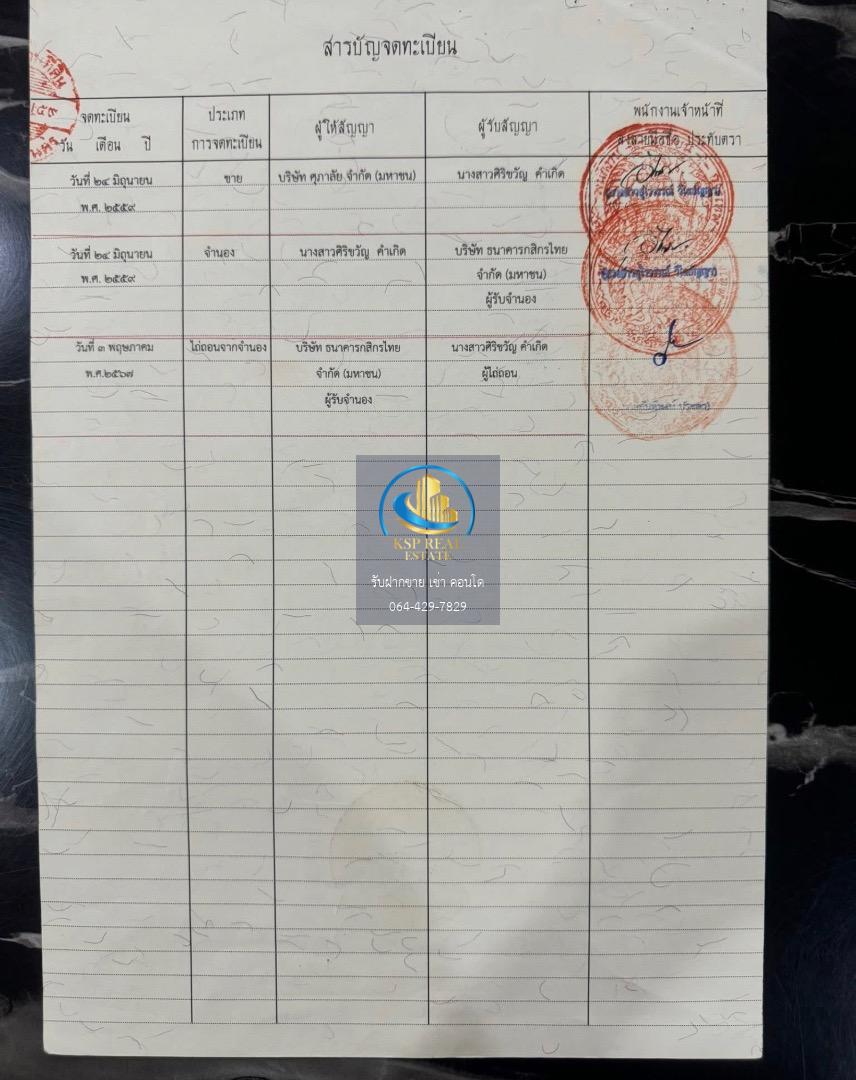 สารบัญจดทะเบียน
จดทะเบียน
วัน เดือน ปี
ประเภท
การจดทะเบียน
ผู้ให้สัญญา
ผู้รับสัญญา
พนักงานเจ้าหน้าที่
ลงลายมือชื่อ ประทับตรา
วันที่ ๒๔ มิถุนายน
พ.ศ. ๒๕๕๙
ขาย
บริษัท ศุภาลัย จำกัด (มหาชน)
นางสาวศิริขวัญ คำเกิด
วันที่ ๒๔ มิถุนายน
พ.ศ. ๒๕๕๙
จำนอง
นางสาวศิริขวัญ คำเกิด
บริษัท ธนาคารกสิกรไทย
จำกัด (มหาชน)
ผู้รับจำนอง
วันที่ ๓ พฤษภาคม
พ.ศ.๒๕๖๗
ไถ่ถอนจากจำนอง
บริษัท ธนาคารกสิกรไทย
จำกัด (มหาชน)
ผู้รับจำนอง
นางสาวศิริขวัญ คำเกิด
ผู้ไถ่ถอน
KSP REAL
ESTATE
รับฝากขาย เช่า คอนโด
064-429-7829